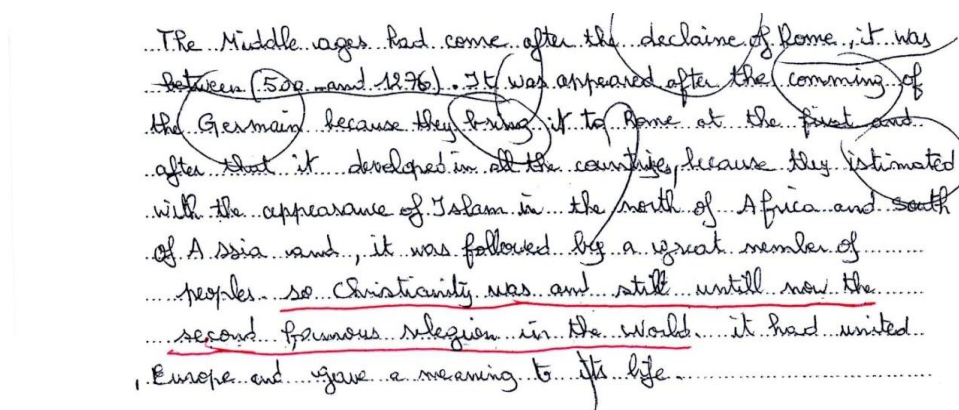 The Middle ages had come after the declaine of Rome, it was
between (500 and 1276). It was appeared after the comming of
the Germain because they bring it to Rome at the first and
after that it developed in all the countries, because they istimated
with the appearance of Islam in the north of Africa and south
of A ssia and, it was followed by a great member of
peoples. so Christianity was and still untill now the
second famous relegion in the world. it had united
Europe and gave a meaning to its life.